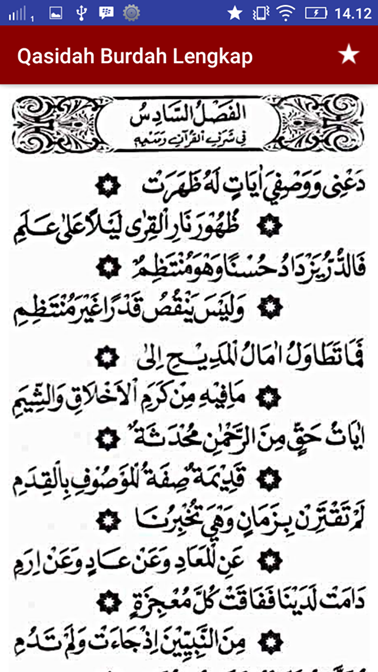 1 14.12
Qasidah Burdah Lengkap
الفَصْلُ السَّادِسُ
فِي شَرَفِ القُرْآنِ
دَعْنِى وَوَصْفِيَ اٰيَاتٍ لَهُ ظَهَرَتْ
ظُهُوْرَ نَارِ الْقِرٰى لَيْلًا عَلٰى عَلَمِ
فَالدُّرُّ يَزْدَادُ حُسْنًا وَهْوَ مُنْتَظِمٌ
وَلَيْسَ يَنْقُصُ قَدْرًا غَيْرَ مُنْتَظِمِ
فَمَا تَطَاوَلُ اٰمَالُ الْمَدِيْحِ اِلىٰ
مَا فِيْهِ مِنْ كَرَمِ الْاَخْلَاقِ وَالشِّيَمِ
اٰيَاتُ حَقٍّ مِنَ الرَّحْمٰنِ مُحْدَثَةٌ
قَدِيْمَةٌ صِفَةُ الْمَوْصُوْفِ بِالْقِدَمِ
لَمْ تَقْتَرِنْ بِزَمَانٍ وَهْيَ تُخْبِرُنَا
عَنِ الْمَعَادِ وَعَنْ عَادٍ وَعَنْ اِرَمِ
دَامَتْ لَدَيْنَا فَفَاقَتْ كُلَّ مُعْجِزَةٍ
مِنَ النَّبِيِّيْنَ اِذْ جَاءَتْ وَلَمْ تَدُمِ